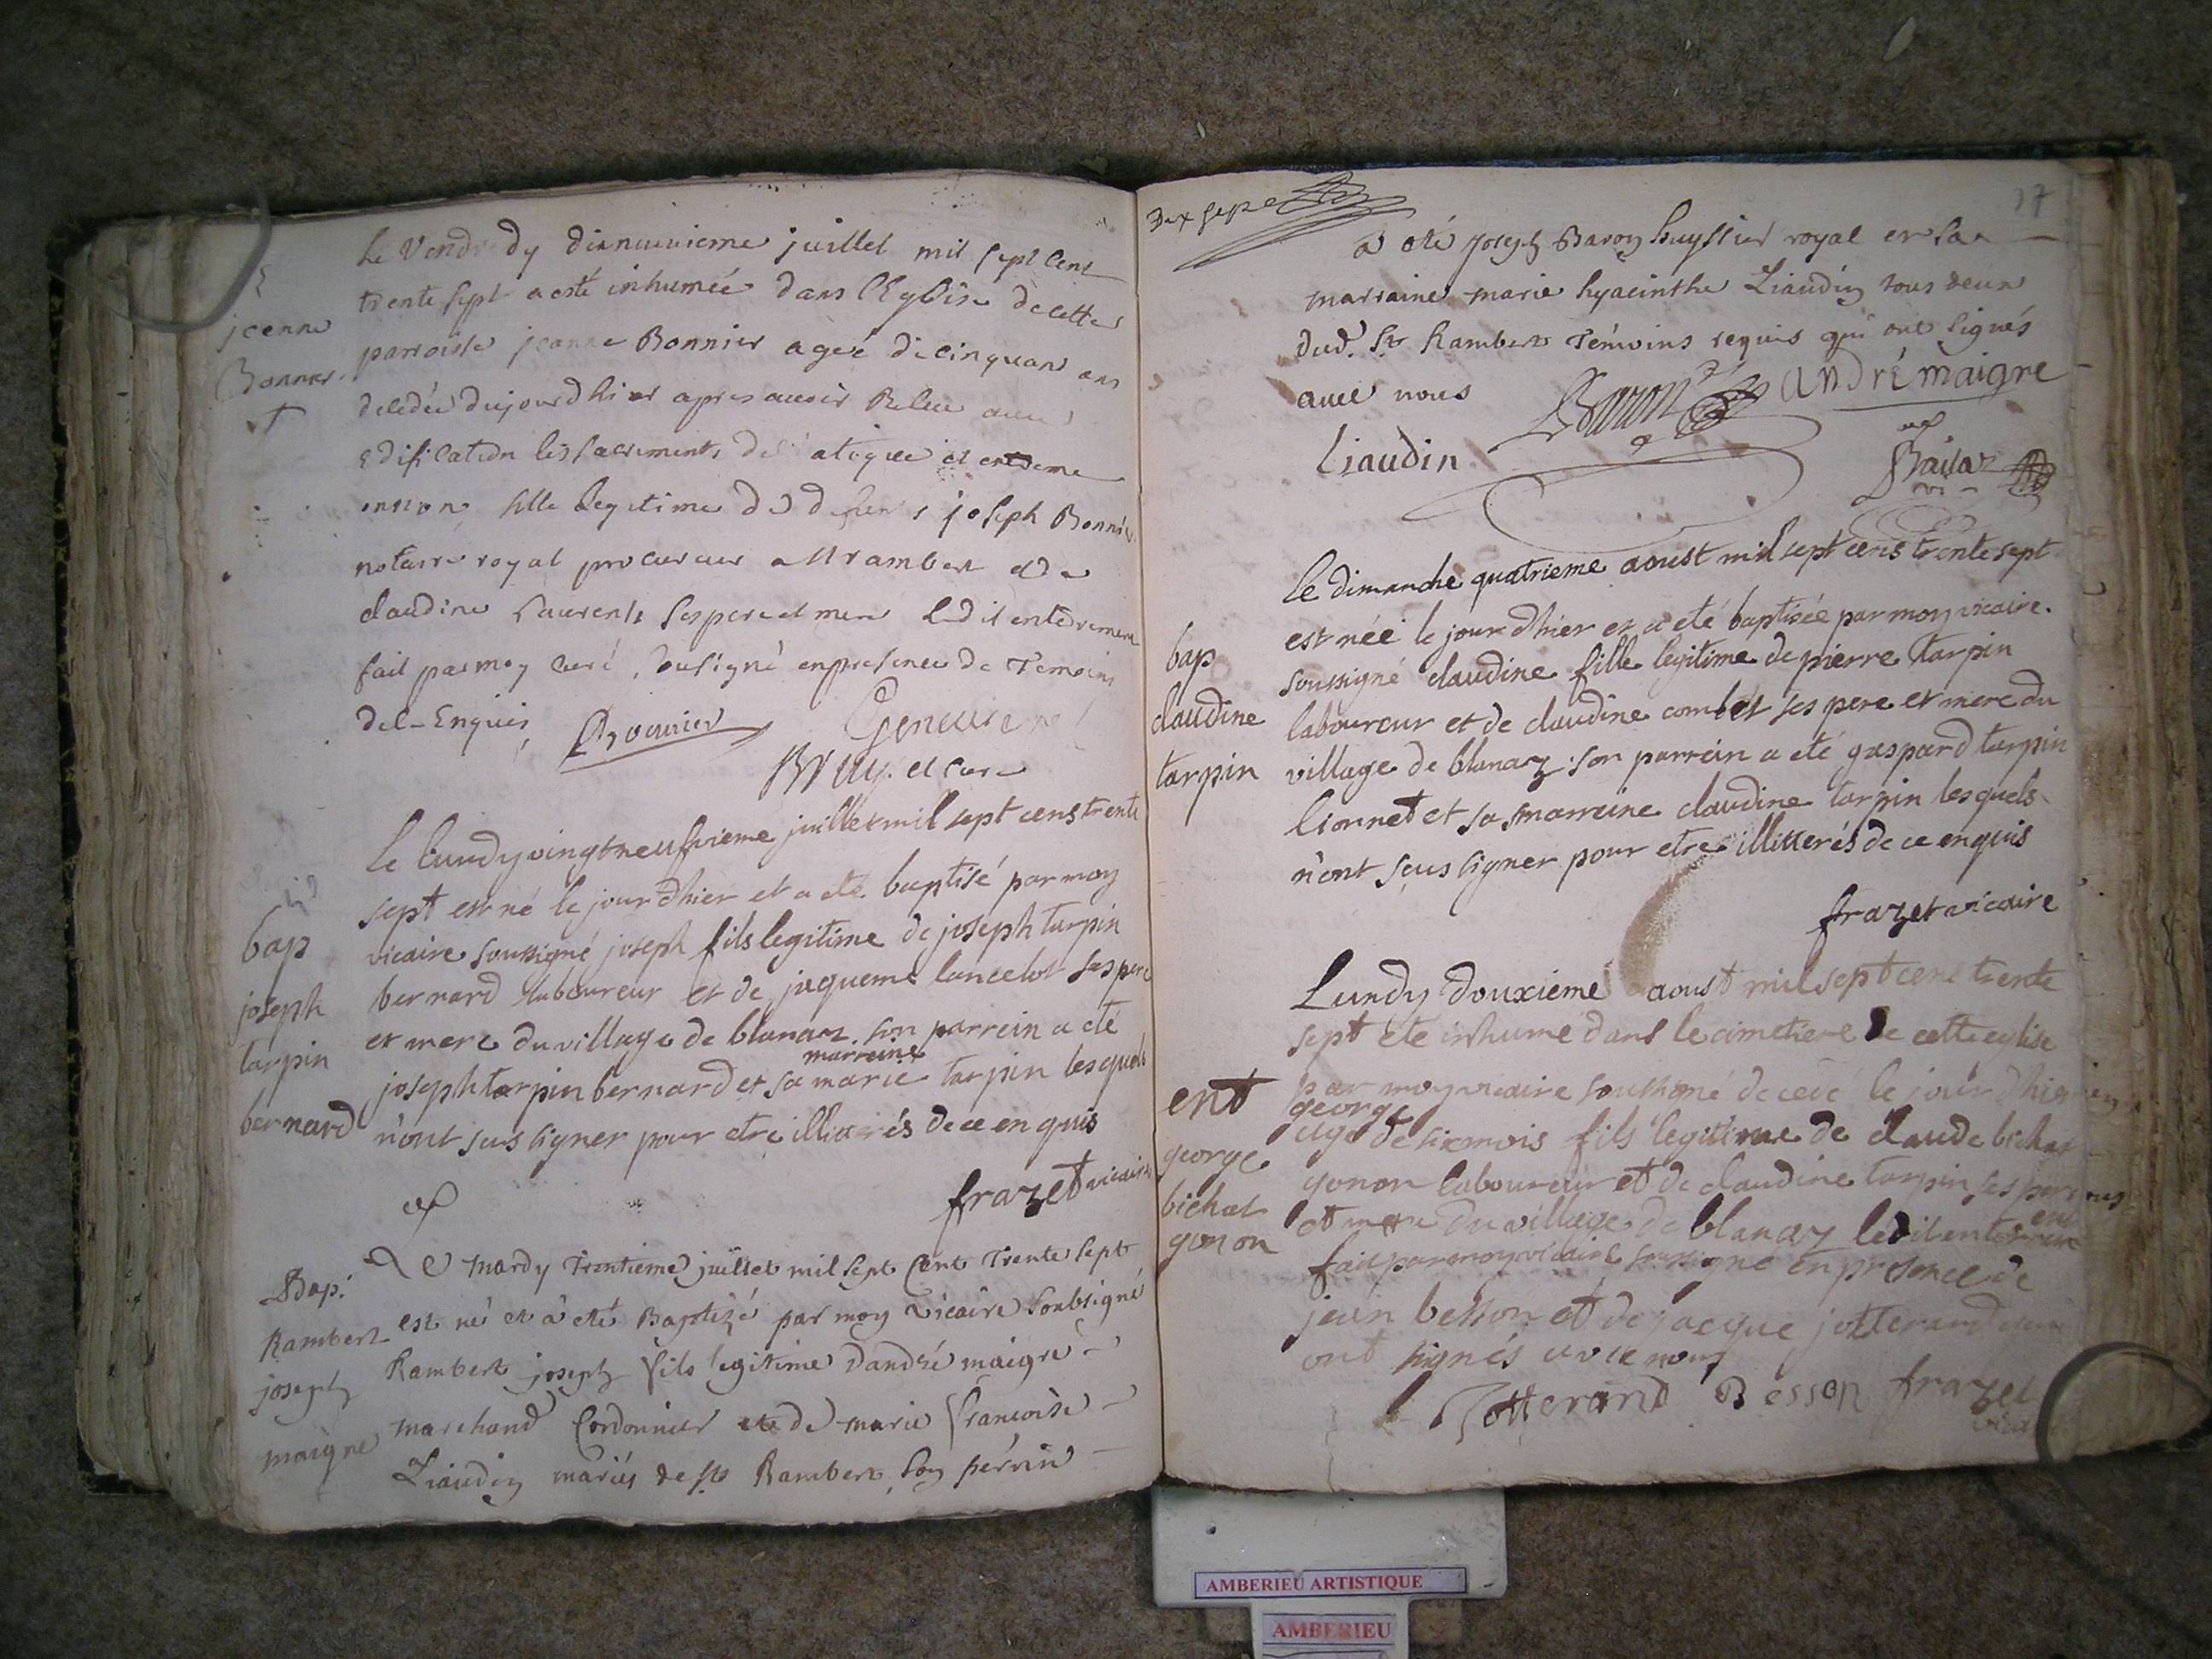 jeanne
Bonnier
Le Vendredy dixneuvieme juillet mil sept cent
trente sept a esté inhumée dans l'Eglise de cette
parroisse jeanne Bonnier agée de cinquant ans
decedée dujourdhier apres avoir Receu avec
edification les sacrements de et extreme
onction fille legitime de defunt joseph Bonnier
notaire royal procureur a st rambert et de
claudine Laurent ses pere et mere Ledit enterrement
fait par moy curé sousigné en presence de Temoins
del Enquis
Bruy curé
bap
joseph
tarpin
bernard
Le lundy vingtneufvieme juillet mil sept cens trente
sept est né le jour d'hier et a eté baptisé par moy
vicaire soussigné joseph fils legitime de joseph tarpin
bernard laboureur et de jaqueme lancelot ses pere
et mere du village de blanaz son parrein a eté
joseph tarpin bernard et sa marreine marie tarpin lesquels
n'ont sçus signer pour etre illiterés de ce enquis
frazet vicaire
Bap.
Rambert
joseph
maigre
Le mardy Trentieme juillet mil sept Cent Trente sept
est né et à eté Baptizé par moy vicaire soubsigné
Rambert joseph fils legitime dandré maigre
marchand Cordonnier et de marie françoise
Liaudin mariés de st Rambert, son perrin
Dix sept
17
a eté joseph Baron huyssier royal et sa
marraine marie hyacinthe Liaudin tous deux
dud. St Rambert Témoins requis qui ont signés
avec nous
Baron
andré maigre
Liaudin
bap
claudine
tarpin
le dimanche quatrieme aoust mil sept cens trente sept
est née le jour d'hier et a eté baptisée par moy vicaire
soussigné claudine fille legitime de pierre tarpin
laboureur et de claudine combet ses pere et mere du
village de blanaz son parrein a eté gaspard tarpin
lionnet et sa marreine claudine tarpin lesquels
n'ont sçus signer pour etre illitterés de ce enquis
frazet vicaire
ent
george
bichat
gonon
Lundy douxieme aoust mil sept cens trente
sept eté inhumé dans le cimetiere de cette eglise
par moy vicaire soussigné decedé le jour d'hier
george
agé de six mois fils legitime de claude bichat
gonon laboureur et de claudine tarpin ses pere
et mere du village de blanaz ledit enterrement
fait par moy vicaire soussigné en presence de
jean besson et de jacque jotterand
ont signés avec nous
Jotterand Besson frazet
vicaire
AMBERIEU ARTISTIQUE
AMBERIEU